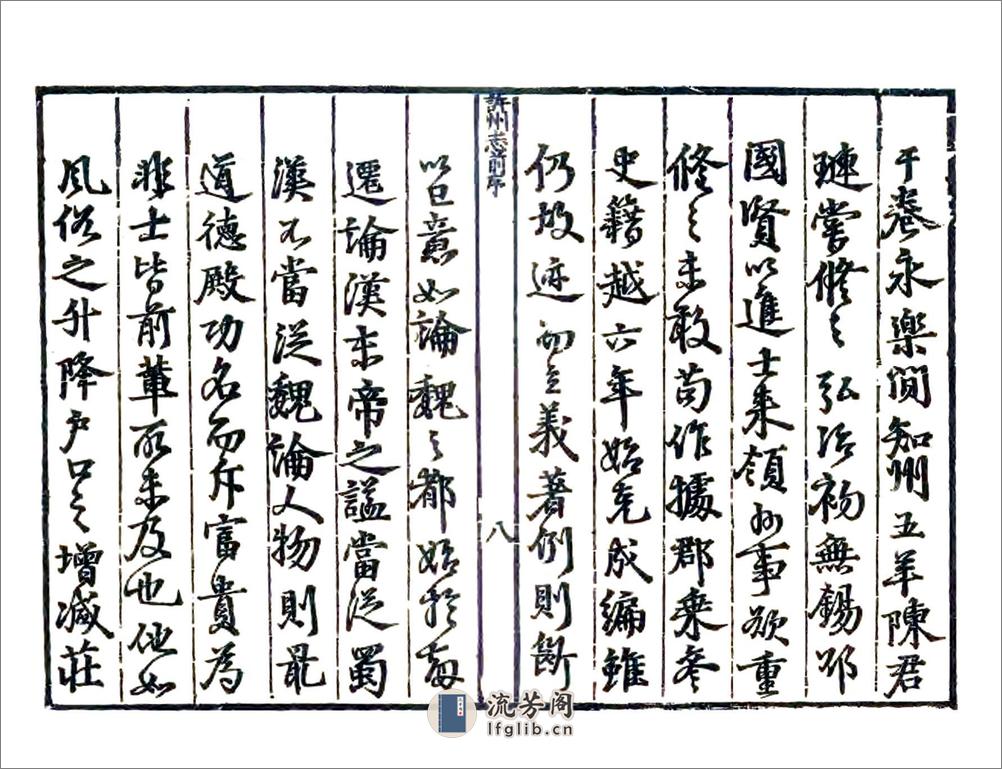 干卷永樂間知州五羊陳君
璉嘗修之弘治初無錫邵
國賢以進士來領州事欲重
修之未敢苟作據郡乘參
史籍越六年始克成編雖
仍故迹而立義著例則斷
許州志前序
八
以己意如論魏之都始於
遷論漢末帝之謚當從蜀
漢不當從魏論人物則最
道德殿功名而斥富貴為
非士皆前輩所未及也他如
風俗之升降戶口之增減莊
流芳阁
lfglib.cn